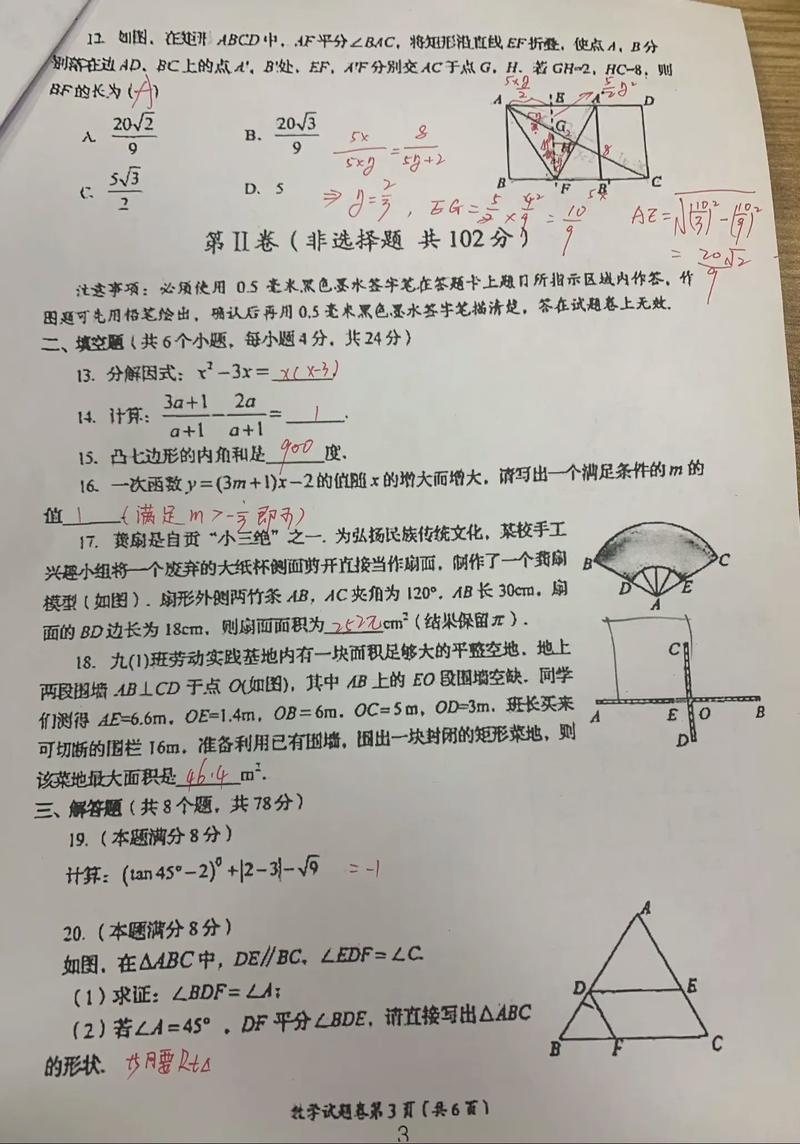 12. 如图，在矩形 ABCD 中，AF 平分∠BAC，将矩形沿直线 EF 折叠，使点 A，B 分
别落在边 AD、BC 上的点 A'，B'处，EF，A'F 分别交 AC 于点 G，H．若 GH=2，HC=8，则
BF 的长为 ( A )
A. 20√2/9
B. 20√3/9
C. 5√3/2
D. 5
5x/5xy = 8/(5y+2)
⇒ y = 2/3, EG = 5/2 × 4/9 = 10/9
AE = √((10/3)² − (10/9)²)
= 20/9 √2
A E A' D
G
H
B F B' C
第Ⅱ卷（非选择题 共 102 分）
注意事项：必须使用 0.5 毫米黑色墨水签字笔在答题卡上题目所指示区域内作答，作
图题可先用铅笔绘出，确认后再用 0.5 毫米黑色墨水签字笔描清楚，答在试题卷上无效．
二、填空题（共 6 个小题，每小题 4 分，共 24 分）
13. 分解因式：x² −3x = x(x-3)
14. 计算：(3a+1)/(a+1) − 2a/(a+1) = 1 ．
15. 凸七边形的内角和是 900 度．
16. 一次函数 y=(3m+1)x−2 的值随 x 的增大而增大，请写出一个满足条件的 m 的
值 1 （满足 m>-1/3 即可）
17. 龚扇是自贡“小三绝”之一．为弘扬民族传统文化，某校手工
兴趣小组将一个废弃的大纸杯侧面剪开直接当作扇面，制作了一个龚扇
模型（如图）．扇形外侧两竹条 AB，AC 夹角为 120°．AB 长 30cm，扇
面的 BD 边长为 18cm，则扇面面积为 252π cm²（结果保留π）．
B C
D E
A
18. 九(1)班劳动实践基地内有一块面积足够大的平整空地．地上
两段围墙 AB⊥CD 于点 O(如图)，其中 AB 上的 EO 段围墙空缺．同学
们测得 AE=6.6m，OE=1.4m，OB=6m，OC=5m，OD=3m．班长买来
可切断的围栏 16m，准备利用已有围墙，围出一块封闭的矩形菜地，则
该菜地最大面积是 46.4 m²．
C
A E O B
D
三、解答题（共 8 个题，共 78 分）
19.（本题满分 8 分）
计算：(tan 45°−2)⁰+|2−3|−√9 = -1
20.（本题满分 8 分）
如图，在△ABC 中，DE∥BC，∠EDF=∠C．
（1）求证：∠BDF=∠A；
（2）若∠A=45°，DF 平分∠BDE，请直接写出△ABC
的形状． 等腰Rt△
A
D E
B F C
数学试题卷第 3 页（共 6 页）
3